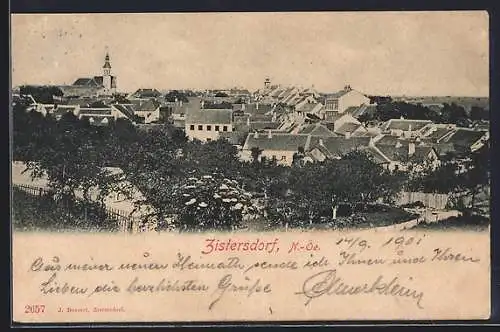 Zistersdorf, N.-Oe. 14/9 1901
Aus meiner neuen Heimath sende ich Ihnen und Ihren
Lieben die herzlichsten Grüße
2657 J. Bousset, Zistersdorf.